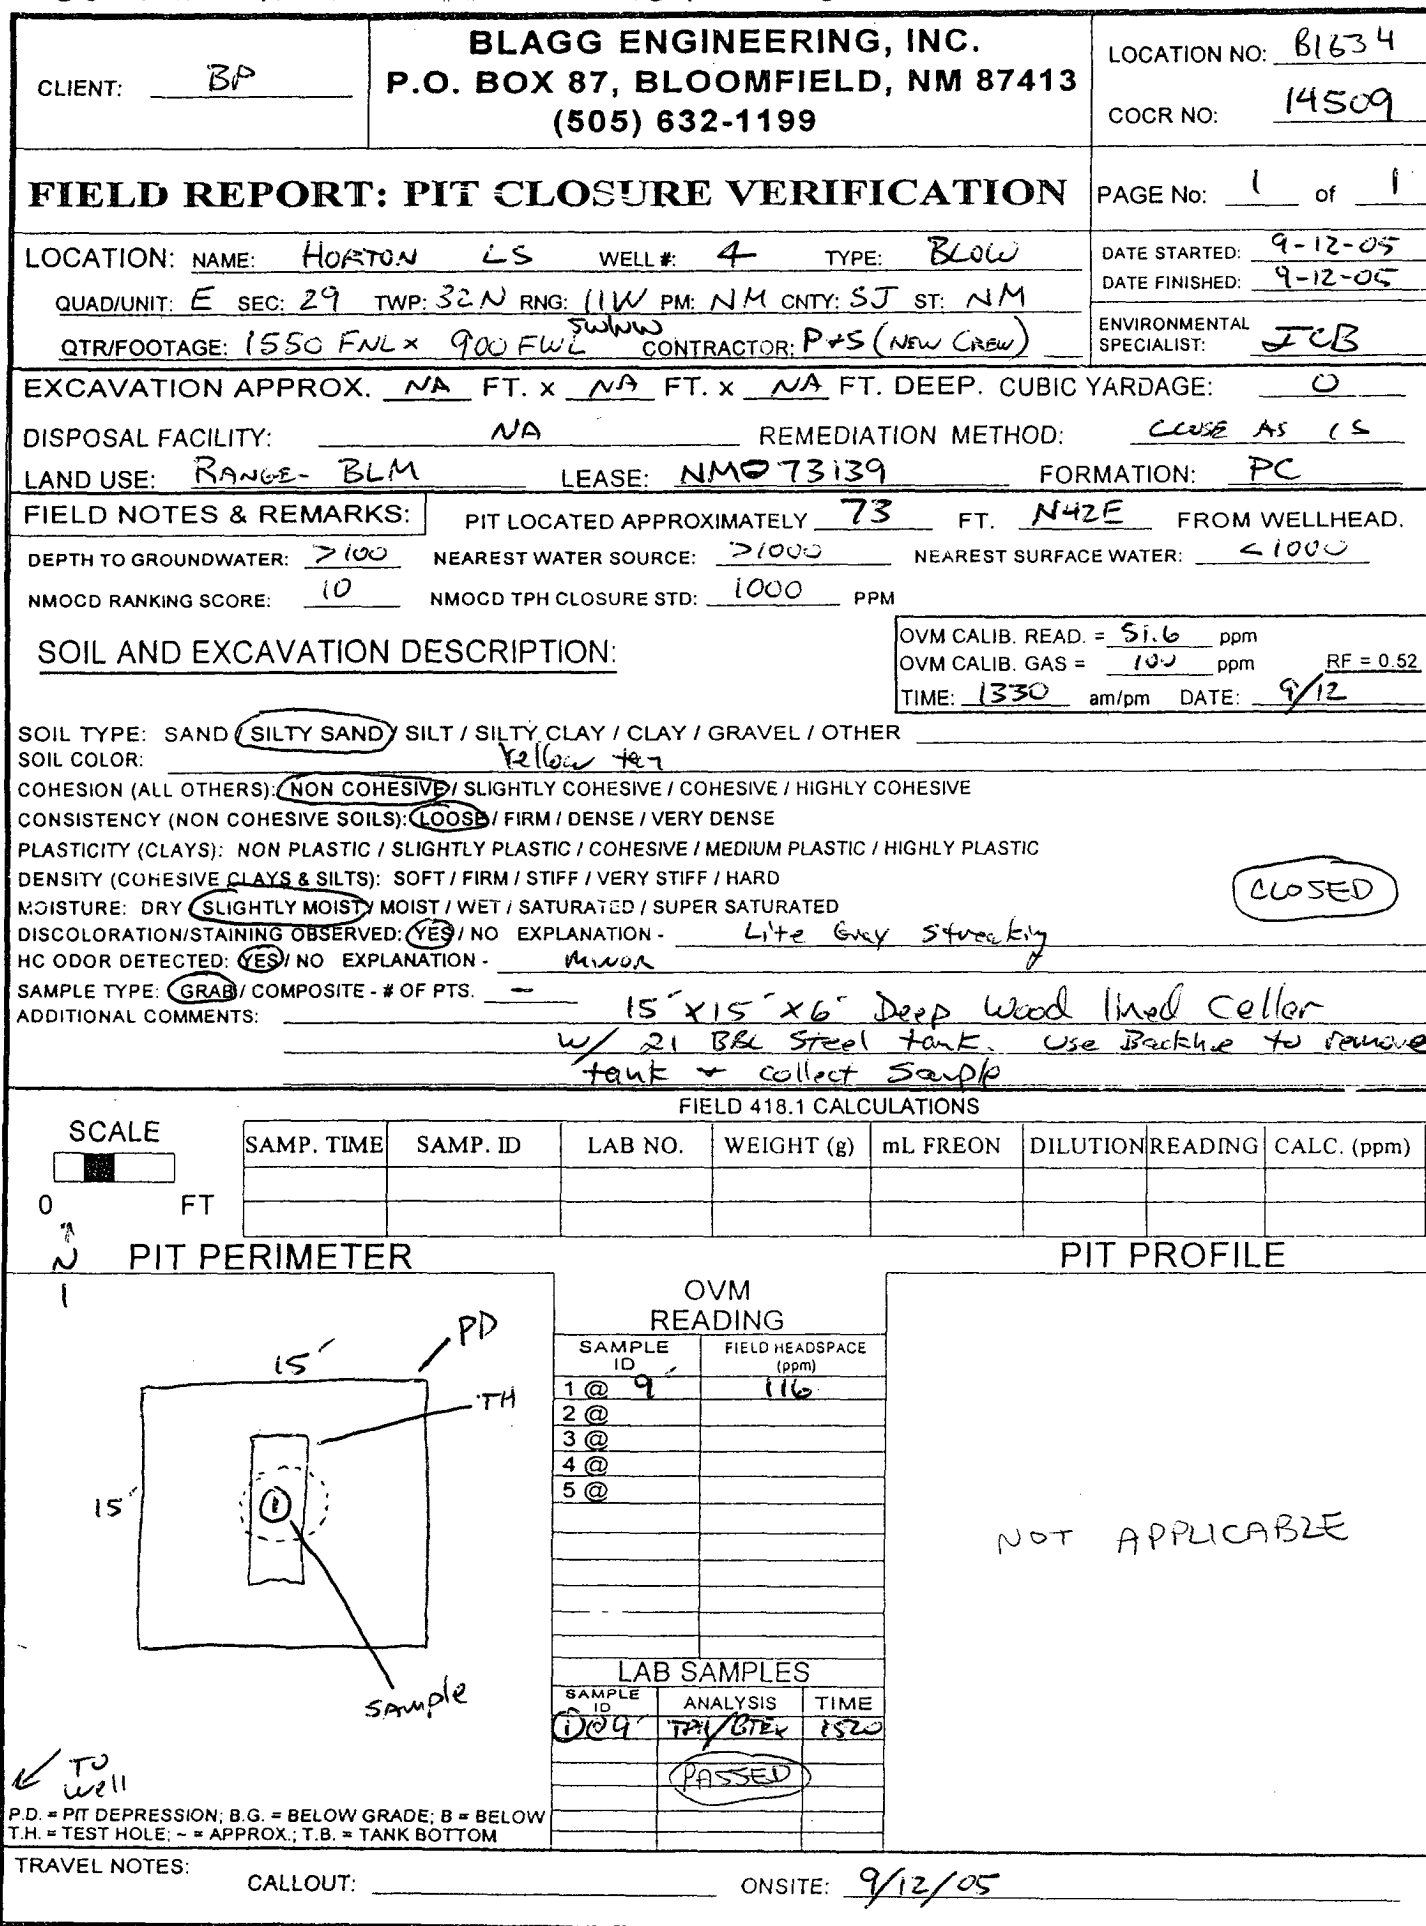 CLIENT: BP
BLAGG ENGINEERING, INC.
P.O. BOX 87, BLOOMFIELD, NM 87413
(505) 632-1199
LOCATION NO: B1634
COCR NO: 14509
FIELD REPORT: PIT CLOSURE VERIFICATION
PAGE No: 1 of 1
LOCATION: NAME: HORTON LS WELL #: 4 TYPE: BLOW
DATE STARTED: 9-12-05
DATE FINISHED: 9-12-05
QUAD/UNIT: E SEC: 29 TWP: 32N RNG: 11W PM: NM CNTY: SJ ST: NM
QTR/FOOTAGE: 1550 FNL x 900 FWL SWNW CONTRACTOR: P+S (NEW CREW)
ENVIRONMENTAL SPECIALIST: JCB
EXCAVATION APPROX. NA FT. x NA FT. x NA FT. DEEP. CUBIC YARDAGE: 0
DISPOSAL FACILITY: NA REMEDIATION METHOD: CLOSE AS IS
LAND USE: RANGE - BLM LEASE: NM073139 FORMATION: PC
FIELD NOTES & REMARKS: PIT LOCATED APPROXIMATELY 73 FT. N42E FROM WELLHEAD.
DEPTH TO GROUNDWATER: >100 NEAREST WATER SOURCE: >1000 NEAREST SURFACE WATER: <1000
NMOCD RANKING SCORE: 10 NMOCD TPH CLOSURE STD: 1000 PPM
SOIL AND EXCAVATION DESCRIPTION:
OVM CALIB. READ. = 51.6 ppm
OVM CALIB. GAS = 100 ppm RF = 0.52
TIME: 1330 am/pm DATE: 9/12
SOIL TYPE: SAND / SILTY SAND / SILT / SILTY CLAY / CLAY / GRAVEL / OTHER
SOIL COLOR: Yellow tan
COHESION (ALL OTHERS): NON COHESIVE / SLIGHTLY COHESIVE / COHESIVE / HIGHLY COHESIVE
CONSISTENCY (NON COHESIVE SOILS): LOOSE / FIRM / DENSE / VERY DENSE
PLASTICITY (CLAYS): NON PLASTIC / SLIGHTLY PLASTIC / COHESIVE / MEDIUM PLASTIC / HIGHLY PLASTIC
DENSITY (COHESIVE CLAYS & SILTS): SOFT / FIRM / STIFF / VERY STIFF / HARD
MOISTURE: DRY / SLIGHTLY MOIST / MOIST / WET / SATURATED / SUPER SATURATED
CLOSED
DISCOLORATION/STAINING OBSERVED: YES / NO EXPLANATION - Lite Gray Streaking
HC ODOR DETECTED: YES / NO EXPLANATION - MINOR
SAMPLE TYPE: GRAB / COMPOSITE - # OF PTS. -
ADDITIONAL COMMENTS: 15' x 15' x 6' Deep Wood lined Cellar
w/ 21 BBL Steel tank. Use Backhoe to remove
tank + collect Sample
FIELD 418.1 CALCULATIONS
SCALE
0 FT
SAMP. TIME SAMP. ID LAB NO. WEIGHT (g) mL FREON DILUTION READING CALC. (ppm)
N
PIT PERIMETER
PIT PROFILE
15'
PD
TH
15'
1
sample
TO
well
P.D. = PIT DEPRESSION; B.G. = BELOW GRADE; B = BELOW
T.H. = TEST HOLE; ~ = APPROX.; T.B. = TANK BOTTOM
OVM
READING
SAMPLE ID FIELD HEADSPACE (ppm)
1 @ 9' 116
2 @
3 @
4 @
5 @
LAB SAMPLES
SAMPLE ID ANALYSIS TIME
1 @ 9' TPH/BTEX 1520
PASSED
NOT APPLICABLE
TRAVEL NOTES: CALLOUT: ONSITE: 9/12/05